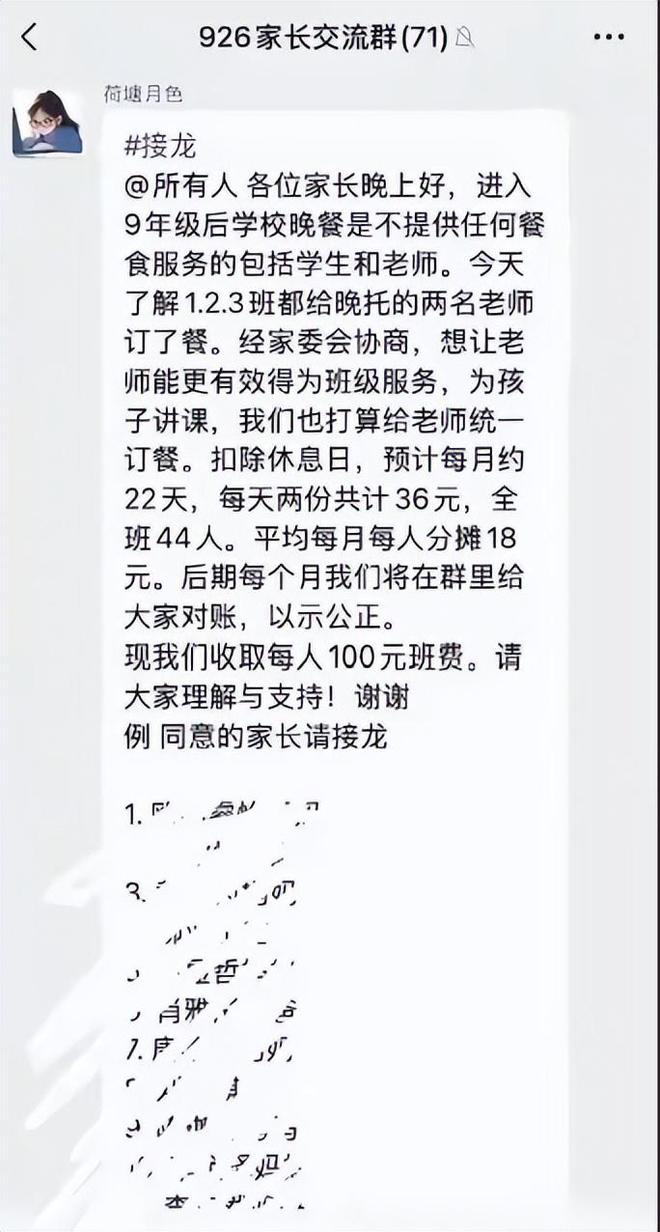 926家长交流群(71)
荷塘月色
#接龙
@所有人 各位家长晚上好，进入
9年级后学校晚餐是不提供任何餐
食服务的包括学生和老师。今天
了解1.2.3班都给晚托的两名老师
订了餐。经家委会协商，想让老
师能更有效得为班级服务，为孩
子讲课，我们也打算给老师统一
订餐。扣除休息日，预计每月约
22天，每天两份共计36元，全
班44人。平均每月每人分摊18
元。后期每个月我们将在群里给
大家对账，以示公正。
现我们收取每人100元班费。请
大家理解与支持！谢谢
例 同意的家长请接龙
1.
3.
7.